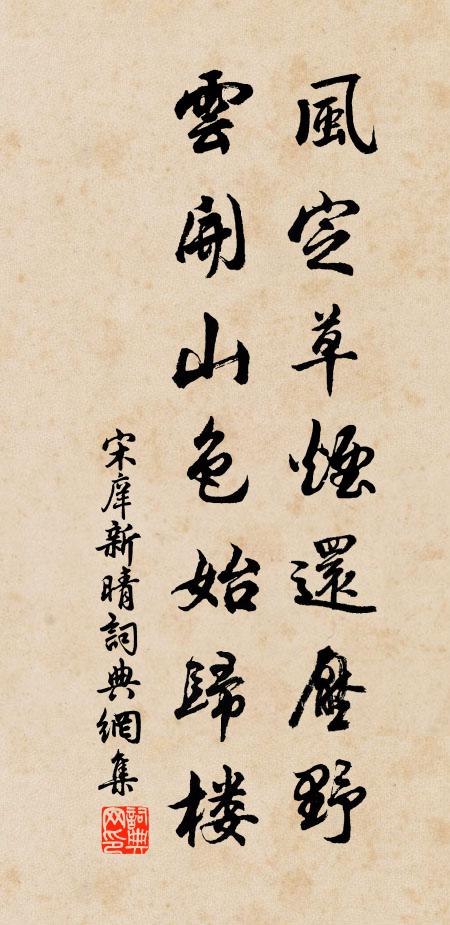 風定草煙還壓野
雲開山色始歸楼
宋庠新晴詞典網集
詞典网印